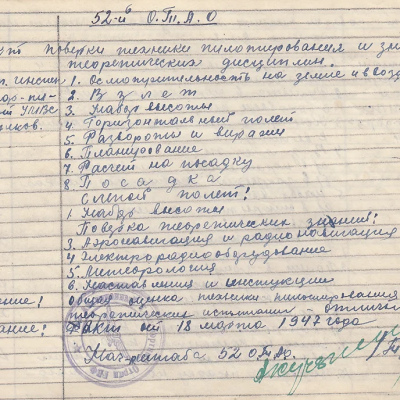 52-й О.Т.А.О
Поверки техники пилотирования и зн
теоретических дисциплин.
1. Осмотрительность на земле и возд
2. Взлет
3. Набор высоты
4. Горизонтальный полет
5. Развороты и виражи
6. Планирование
7. Расчет на посадку
8. Посадка
Слепой полет!
1. Набор высоты
Поверка теоретических знаний!
3. Аэронавигация и радионавигация
4 Электрорадиооборудование
5. Метеорология
6. Наставления и инструкции
Общая оценка техники пилотирования
теоретических
18 марта 1947 года
Нач. штаба 52 о.т.а.о.